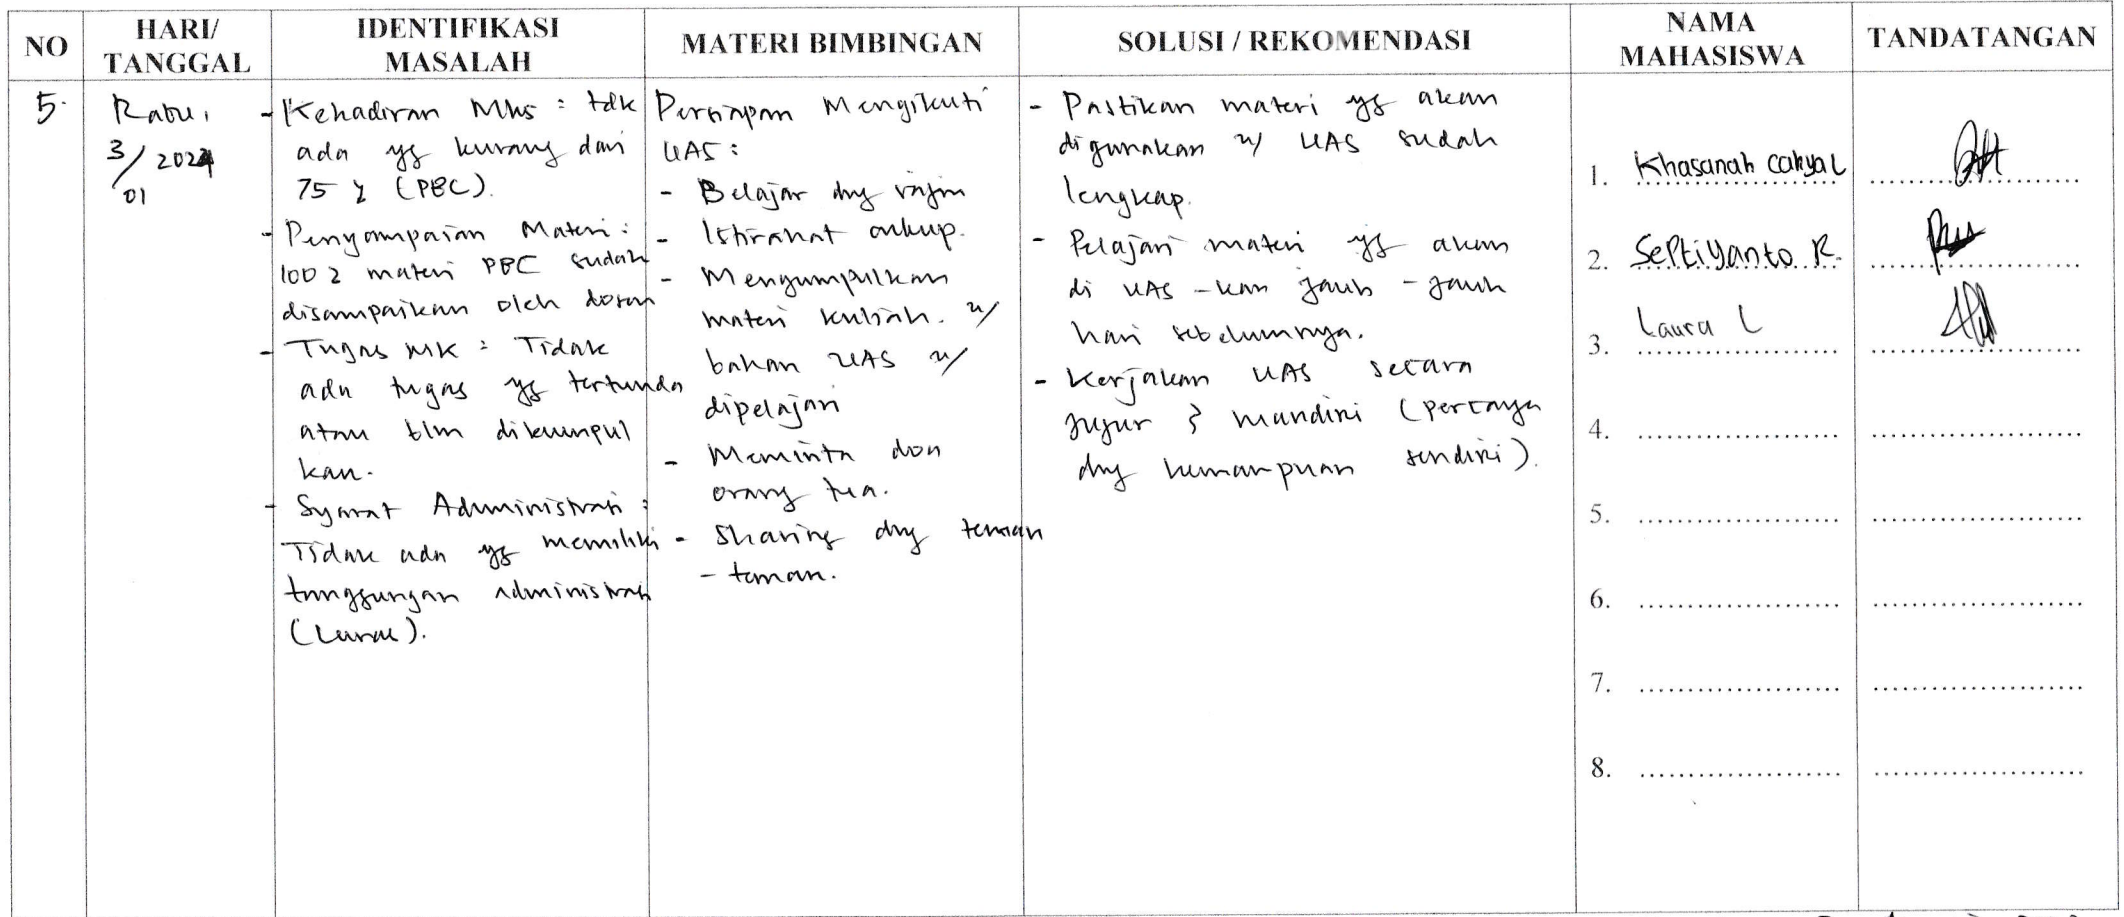 NO
HARI/
TANGGAL
IDENTIFIKASI
MASALAH
MATERI BIMBINGAN
SOLUSI / REKOMENDASI
NAMA
MAHASISWA
TANDATANGAN
5.
Rabu,
3/
01 / 2024
- Kehadiran Mhs : tdk
ada yg kurang dari
75 % (PBC).
- Penyampaian Materi :
100 % materi PBC sudah
disampaikan oleh dosen
- Tugas MK : Tidak
ada tugas yg tertunda
atau blm dikumpul
kan.
- Syarat Administrasi :
Tidak ada yg memiliki
tanggungan administrasi
(Lunas).
Persiapan Mengikuti
UAS :
- Belajar dng rajin
- Istirahat cukup.
- Mengumpulkan
materi kuliah. u/
bahan UAS u/
dipelajari
- Meminta doa
orang tua.
- Sharing dng teman
- teman.
- Pastikan materi yg akan
digunakan u/ UAS sudah
lengkap.
- Pelajari materi yg akan
di UAS - kan jauh - jauh
hari sebelumnya.
- Kerjakan UAS secara
jujur & mandiri (percaya
dng kemampuan sendiri).
1. Khasanah Cahya L
2. Septiyanto R.
3. Laura L
4.
5.
6.
7.
8.